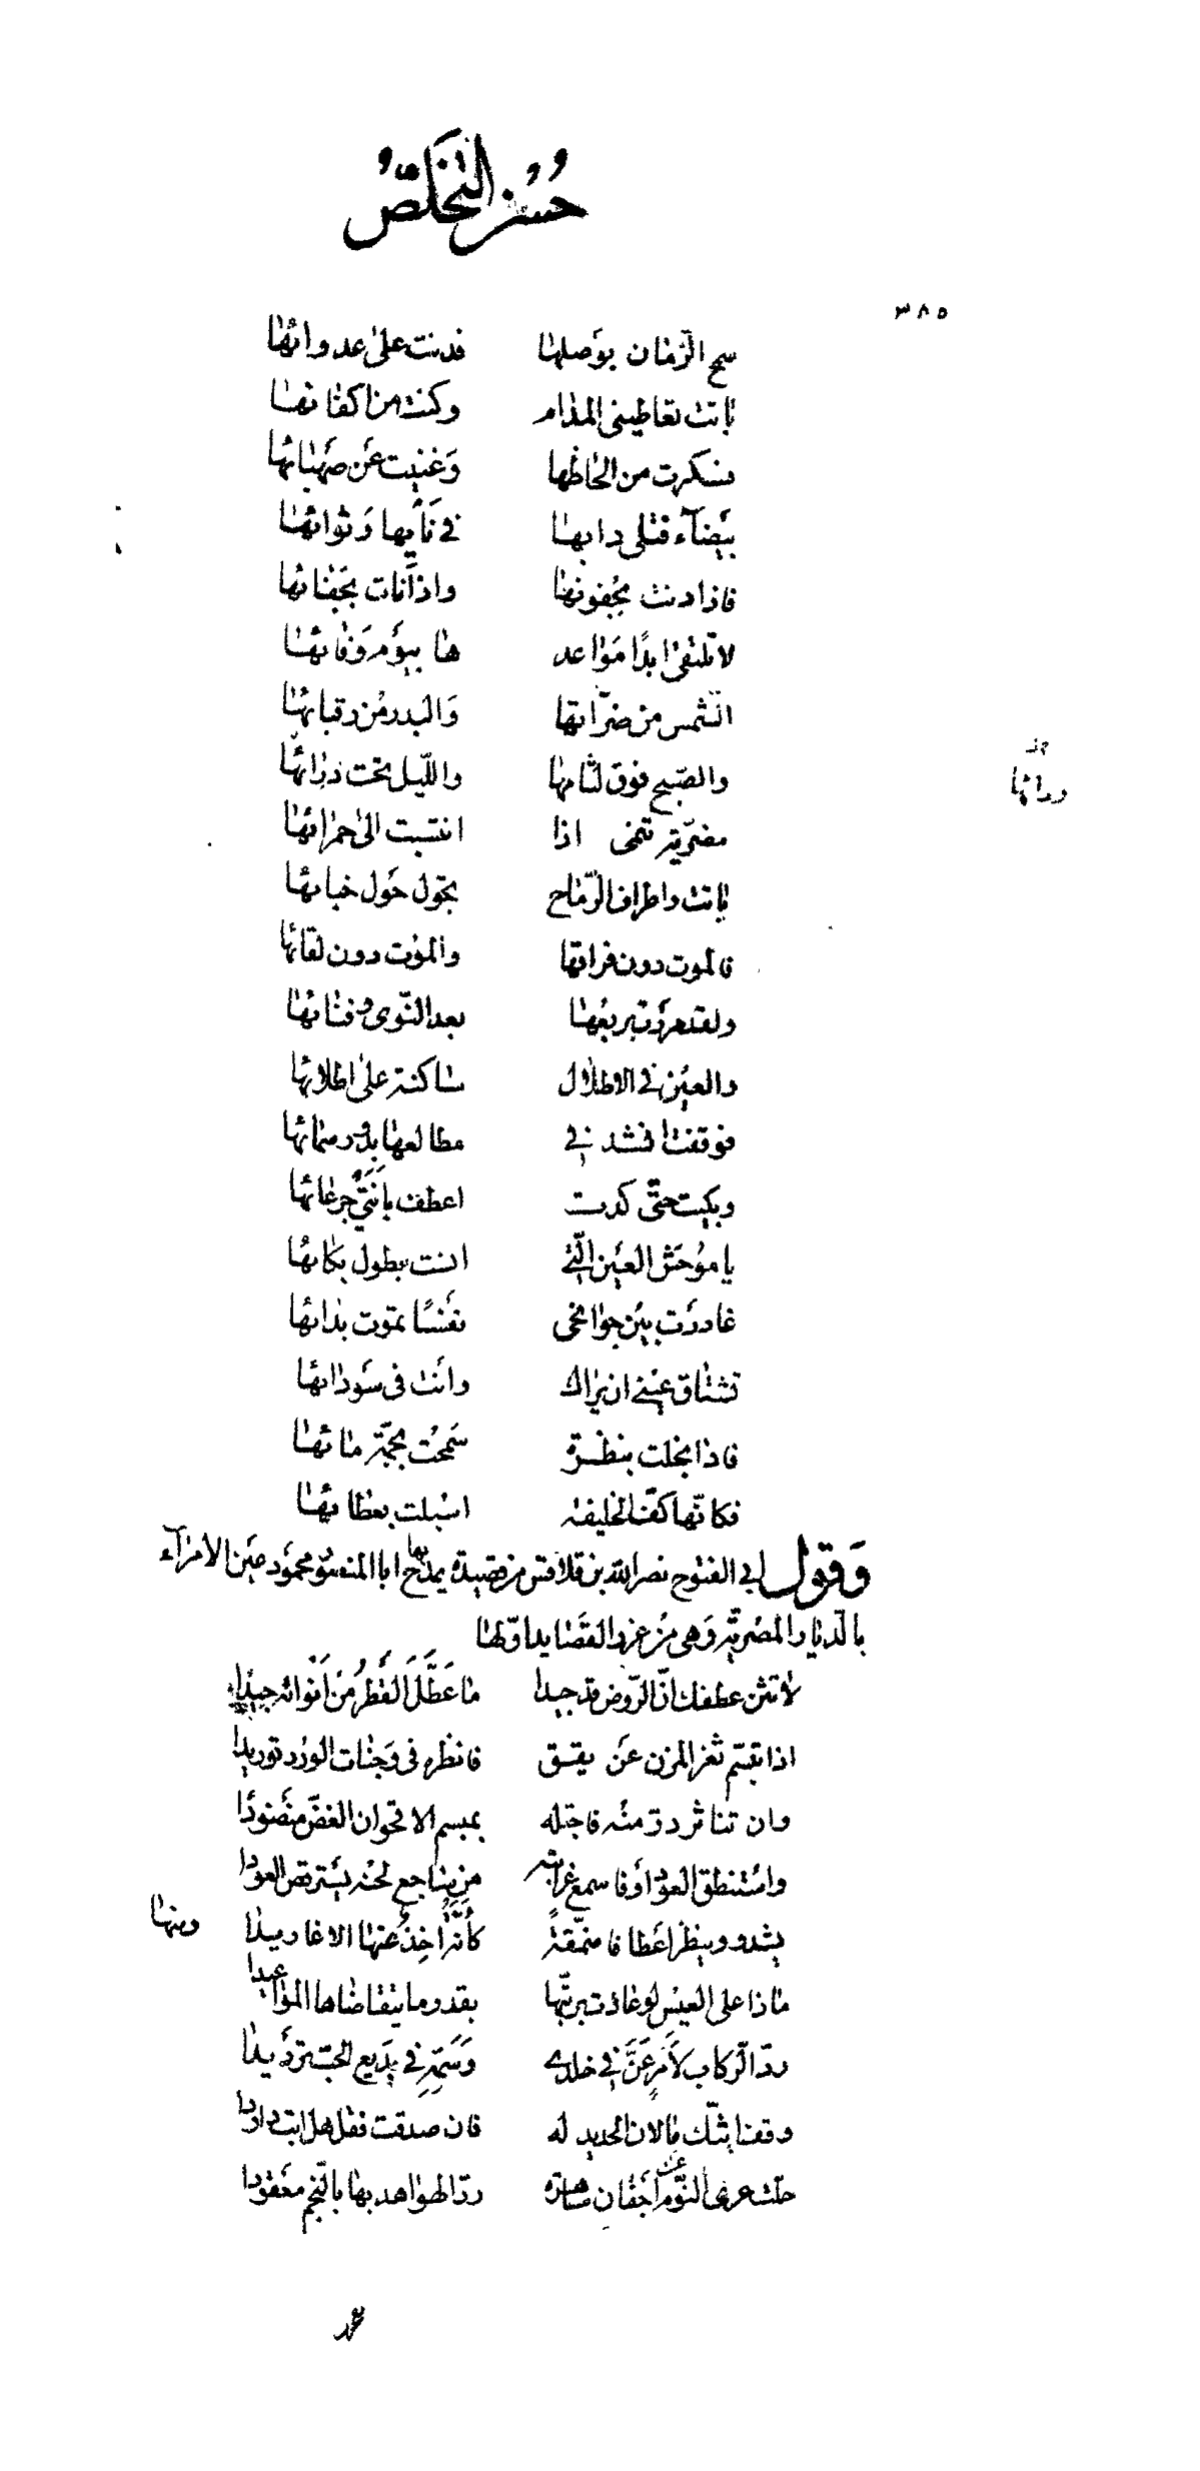 حُسْنُ التَّخَلُّصُ
٣٨٥
سمح الزّمان بوَصلها فدنت على عدوائها
باتت تعاطيني المدام وكنت من اكفائها
فسكرت من الحاظها وَغنيت عَن صَهبائها
بيَضآء قتلى دابها في نَأيها وَثوائها
فاذا دنت بجُفونها واذا نَات بجَفائها
لا تلتقي ابدًا مَواعد ها بيَوم وَفائها
الشّمس من ضرّاتها وَالبدر مُن رقبائها
والصّبح فوق لثامها واللّيل تحت ذرائها
ردائها
مضريّة تنمى اذا انتسبت الى حمرائها
باتت واطراف الرّماح تجَول حَول خبائها
فالموت دون فراقها والموُت دون لقائها
ولقد مررَت بربعُها بعد النّوى وفنائها
والعيُن في الاطلال ساكنة على اطلائها
فوقفت انشد في مطالعها بدُور سمائها
وبكيت حتّى كدت اعطف بانَتَي جرعائها
يا موُحَش العيَن الّتي انست بطول بكائها
غادرَت بيَن جوانحى نفَسًا تموت بدائها
تشتاق عيني ان تراك وانَت فى سَودائها
فاذا بخلت بنظرة سَمحُت بجمّة مائها
فكانّها كفّ الخليفة اسُبلت بعطائها
وَقول ابي الفتوح نصر الله بن قلاقس من قصيدة يمدح بها ابا المنصور محمود عين الامرآء
بالديار المصريّة وَهى من غرر القصَايد اوّلها
لا تثن عطفك انّ الرّوض قد جيدا مَا عَطَّلَ القَطْرُ مَنْ اَنوائه جيدا
اذا تبسّم ثغر المزن عَن يقق فانظر فى وَجنات الورُد توريدا
وان تناثر درّ منُه فاجتله بمبسم الاقحوان الغضّ منضَودًا
واسُتنطق العود أَو فاسمع غرائبه من ساجع لحنه يسَترقص العودا
يشدو وينظر اعَطافا منمّقةً كأنّهَا اخِذ عنها الاغاريدا
ومنها
ماذا على العيسُ لو عادت بربّتها بقدر ما يتقاضاها المواعيدا
ردّ الرّكاب لاَمرٍ عَنَّ في خلدي وَسَمّهِ في بدَيع الحبّ ترديدا
وقفنا بثّك ما لان الحديد له فان صدقت فقل هل انت داودا
حلّت عرى النّوم عن اجَفان ساهرة ردّ الهوا هدبها بالنّجم معَقودا